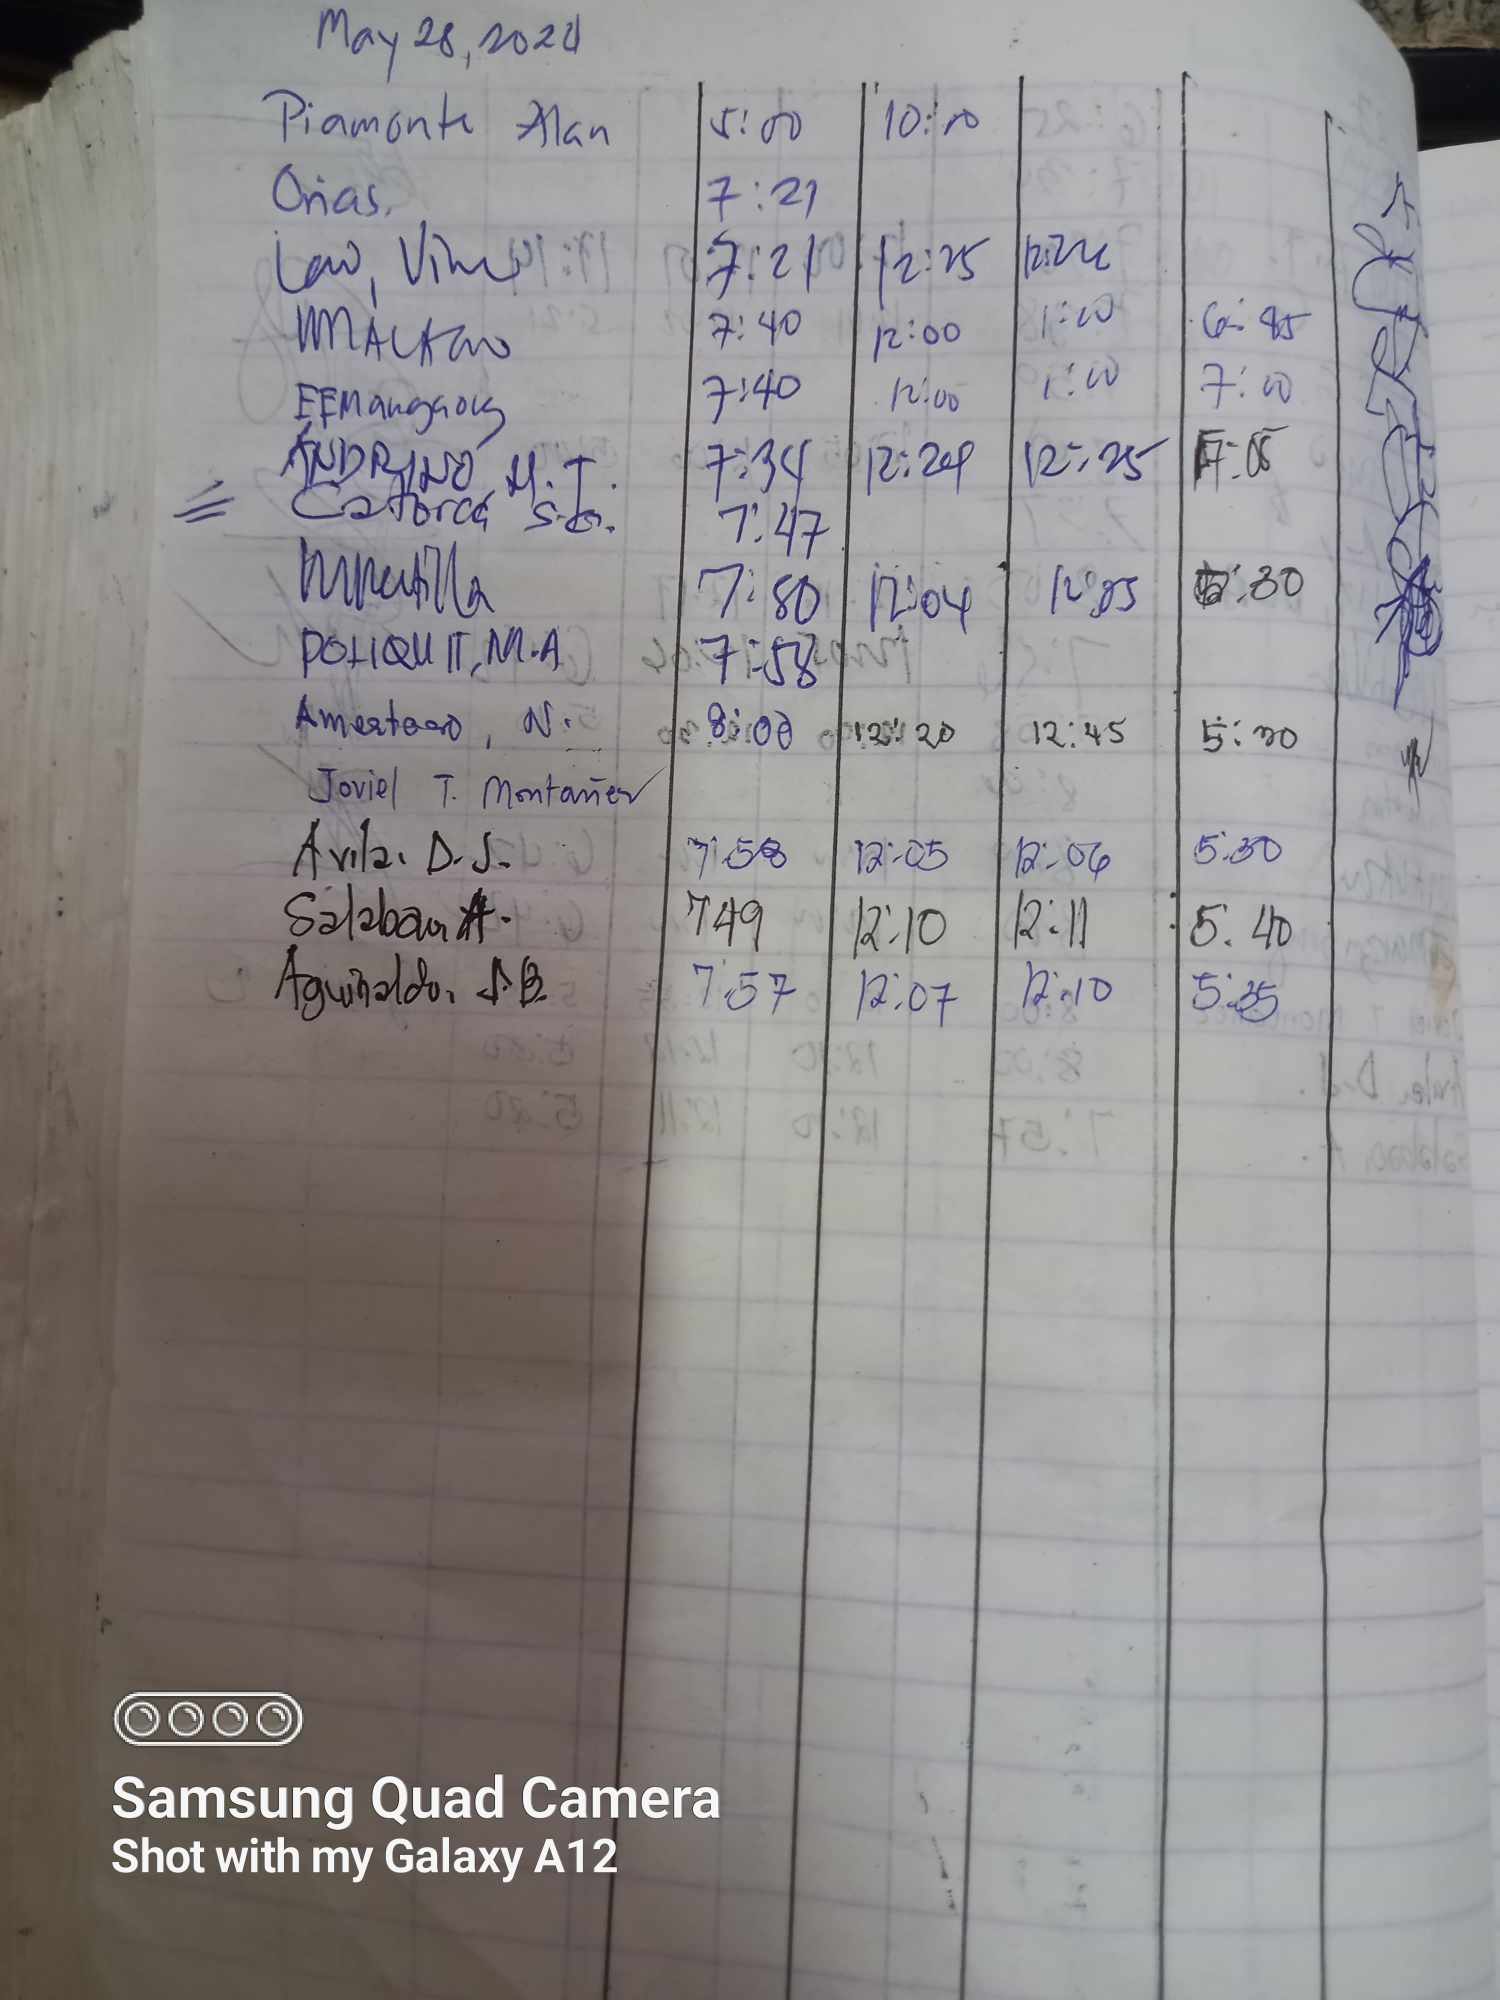 May 28, 2024
Piamonte Alan 5:00 10:00
Orias. 7:21
Law, 7:21 12:25
7:40 12:00 1:00 6:45
EEMangaong 7:40 12:00 1:00 7:00
ANDRINO, M.T. 7:34 12:24 12:25
Catorce S.G. 7:47
7:50 12:04 12:05 5:30
POLIQUIT, M.A 7:58
N. 8:00 12:20 12:45 5:30
Joviel T. Montañer
Avila. D.J. 7:58 12:05 12:06 5:30
Salaban A. 749 12:10 12:11 5:40
Aguinaldo. J.B. 7:57 12:07 12:10 5:35
Samsung Quad Camera
Shot with my Galaxy A12